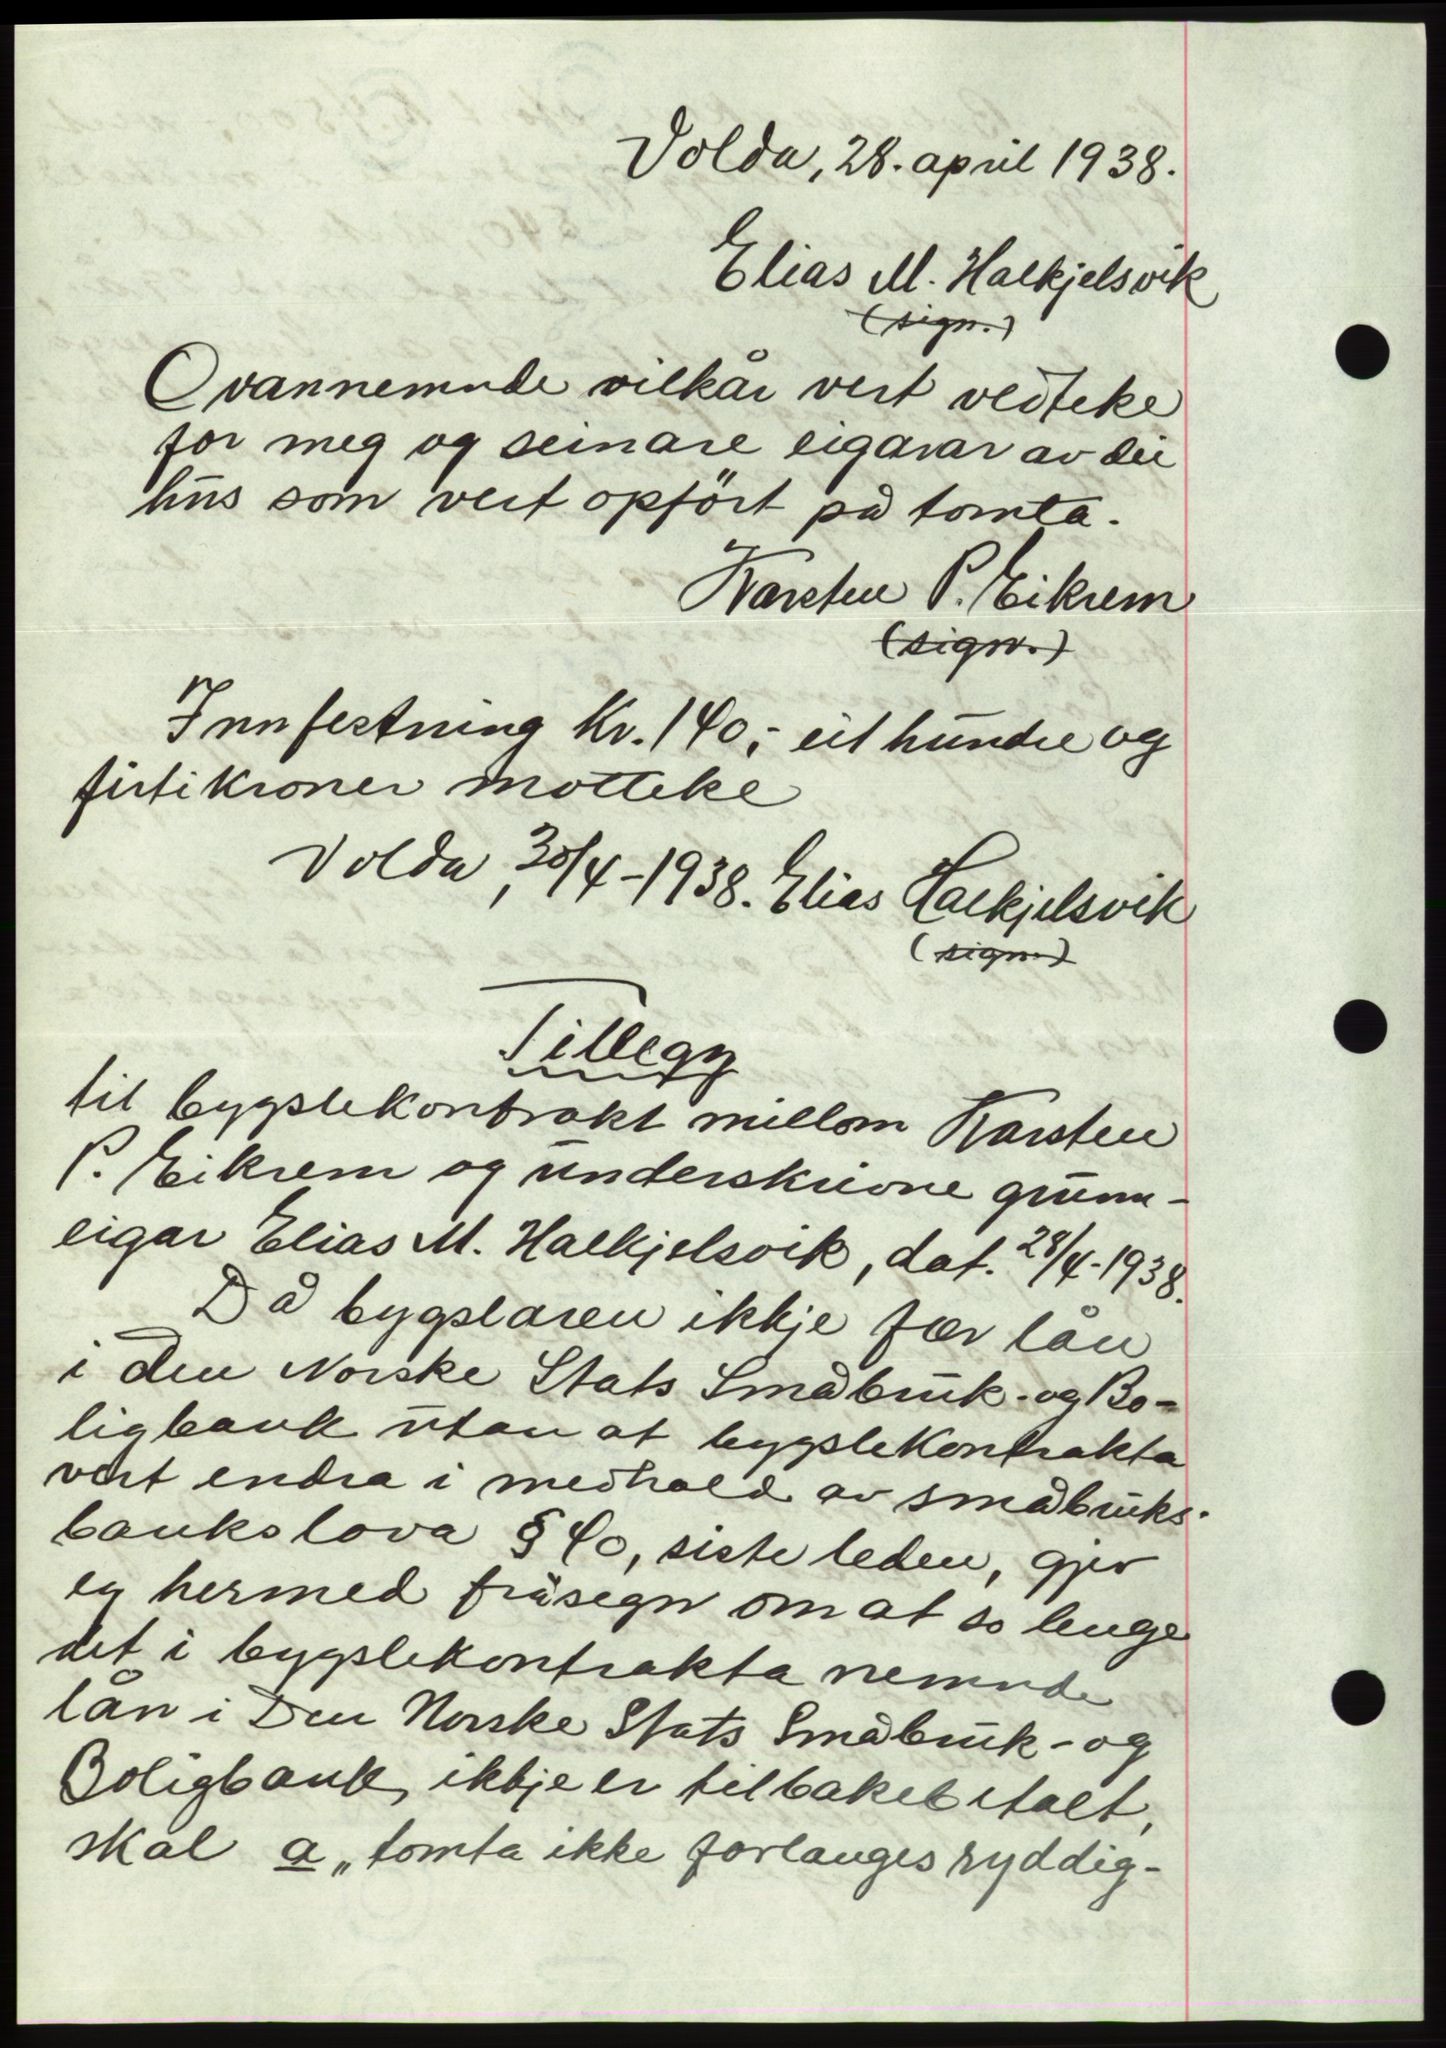 Volda, 28. april 1938.
Elias M. Halkjelsvik
(sign.)
Ovannemnde vilkår vert vedteke
for meg og seinare eigarar av dei
hus som vert opfört på tomta.
Karsten P. Eikrem
(sign.)
Innfestning Kr. 140,- eit hundre og
firti kroner motteke
Volda, 30/4-1938. Elias Halkjelsvik
(sign.)
Tillegg
til bygslekontrakt millom Karsten
P. Eikrem og underskrivne grunn-
eigar Elias M. Halkjelsvik, dat. 28/4-1938.
Då bygslaren ikkje fær lån
i Den Norske Stats Småbruk- og Bo-
ligbank utan at bygslekontrakta
vert endra i medhald av småbruks-
bankslova § 40, siste leden, gjev
eg hermed fråsegn om at so lenge
det i bygslekontrakta nemnde
lån i Den Norske Stats Småbruk- og
Boligbank ikkje er tilbakebetalt,
skal a „tomta ikke forlanges ryddig-